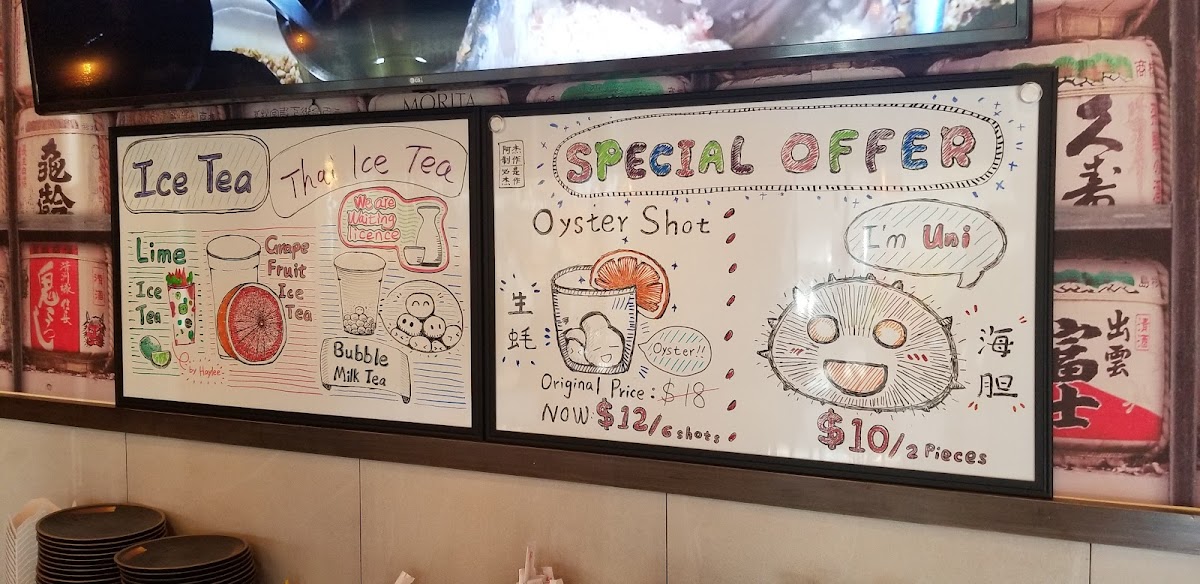 MORITA
Ice Tea
Thai Ice Tea
We are
Waiting
licence
Lime
Ice
Tea
Grape
Fruit
Ice
Tea
by Haylee
Bubble
Milk Tea
SPECIAL OFFER
Oyster Shot
生
蚝
Oyster!!
Original Price: $18
NOW $12/6 shots
I'm Uni
海
胆
$10/2 Pieces
久寿
出雲
富士
清酒
鬼ごろし
清酒